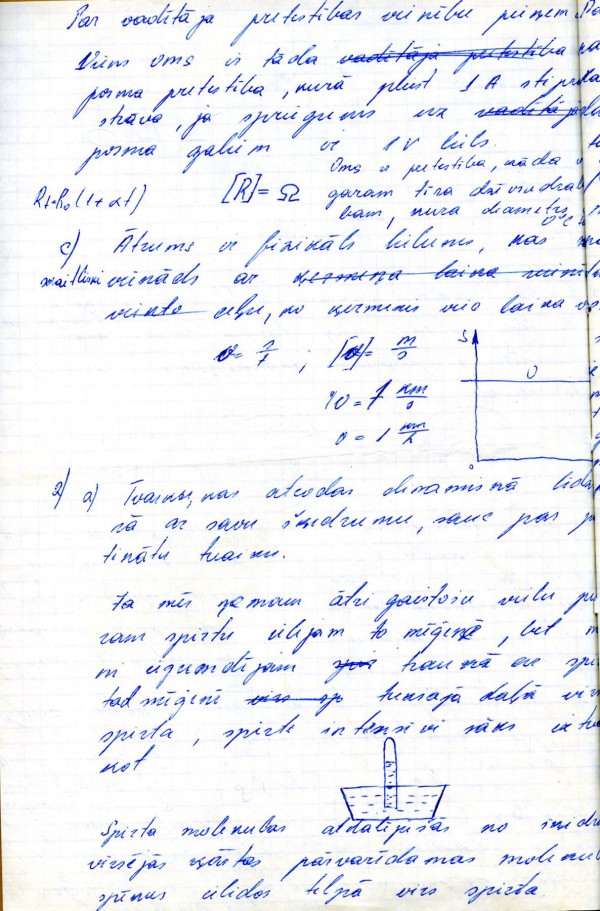 Par vadītāja pretestības vienību pieņem
Viens oms ir tāda vadītāja pretestība
posma pretestība, kurā plūst 1 A stipra
strāva, ja spriegums uz vadītāja
posma galiem ir 1 V liels.
Oms ir pretestība, kāda
Rt=R₀(1+αt) [R]= Ω garam tīra dzīvsudrab
bam, kura diametrs
0°C
c) Ātrums ir fizikāls lielums, kas
skaitliski vienāds ar ķermeņa laika vienībā
veikto ceļu, ko ķermenis veic laika
v= s/t ; [v]= m/s
v = 1 km/s
v = 1 km/h
S
v
0
2) a) Tvaiku, kas atrodas dinamiskā līdzs
rā ar savu šķidrumu, sauc par
tinātu tvaiku.
Ja mēs ņemam ātri gaistošu vielu
ram spirtu ielejam to mēģenē, bet
ni iegremdējam traukā ar spi
tad mēģenē virs sp tukšajā daļā virs
spirta, spirts intensīvi sāks iztv
kot
Spirta molekulas atdalījušās no šķidr
virsējās kārtas pārvarēdamas molekul
spēkus ielidos telpā virs spirta.